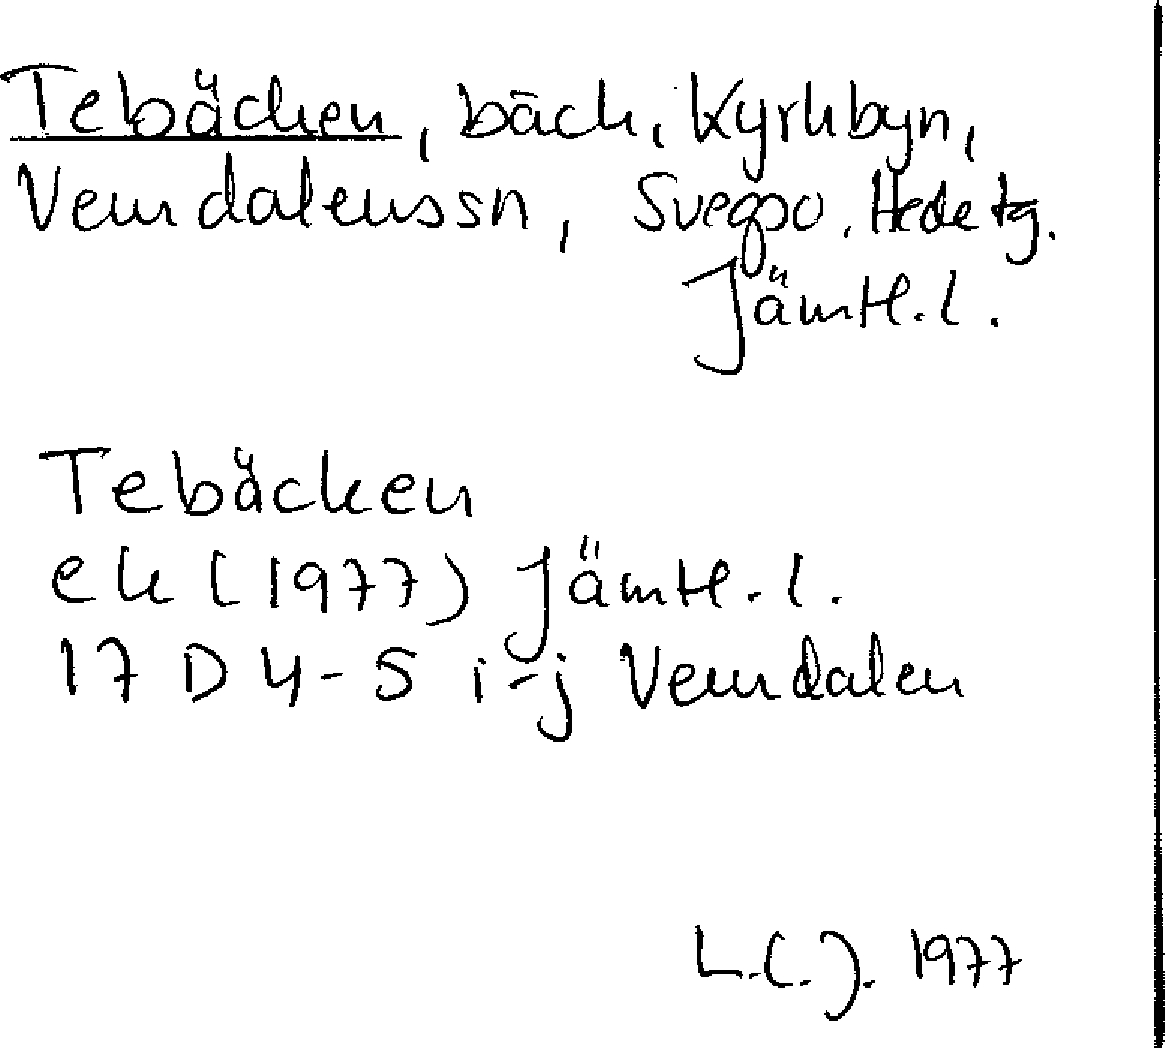 Tebäcken, bäck, Kyrkbyn,
Vemdalenssn, Svegpo. Hede tg.
Jämtl. l.
Tebäcken
ek (1977) Jämtl. l.
17 D 4-5 i-j Vemdalen
L.C.J. 1977